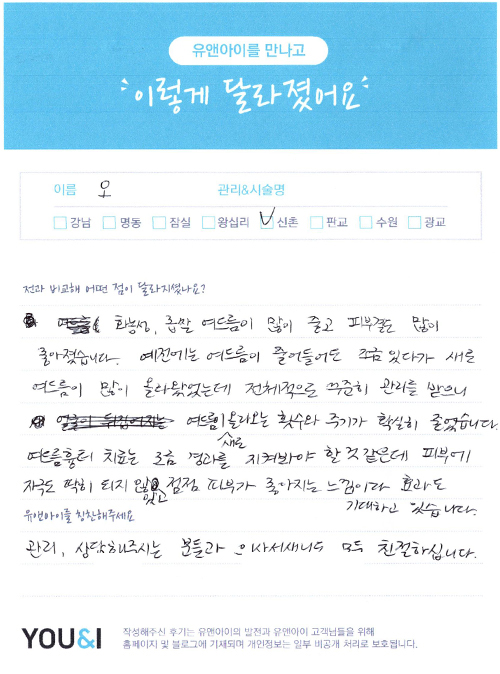 유앤아이를 만나고
이렇게 달라졌어요
이름 오 관리&시술명
강남 명동 잠실 왕십리 신촌 판교 수원 광교
전과 비교해 어떤 점이 달라지셨나요?
화농성, 좁쌀 여드름이 많이 줄고 피부결도 많이
좋아졌습니다. 예전에는 여드름이 줄어들어도 조금 있다가 새로
여드름이 많이 올라왔었는데 전체적으로 꾸준히 관리를 받으니
여드름이 새로 올라오는 횟수와 주기가 확실히 줄었습니다.
여드름흉터 치료는 조금 경과를 지켜봐야 할 것 같은데 피부에
자극도 딱히 되지 않고 점점 피부가 좋아지는 느낌이라 효과도
있고
기대하고 있습니다.
유앤아이를 칭찬해주세요
관리, 상담해주시는 분들과 의사선생님도 모두 친절하십니다.
YOU&I
작성해주신 후기는 유앤아이의 발전과 유앤아이 고객님들을 위해
홈페이지 및 블로그에 기재되며 개인정보는 일부 비공개 처리로 보호됩니다.